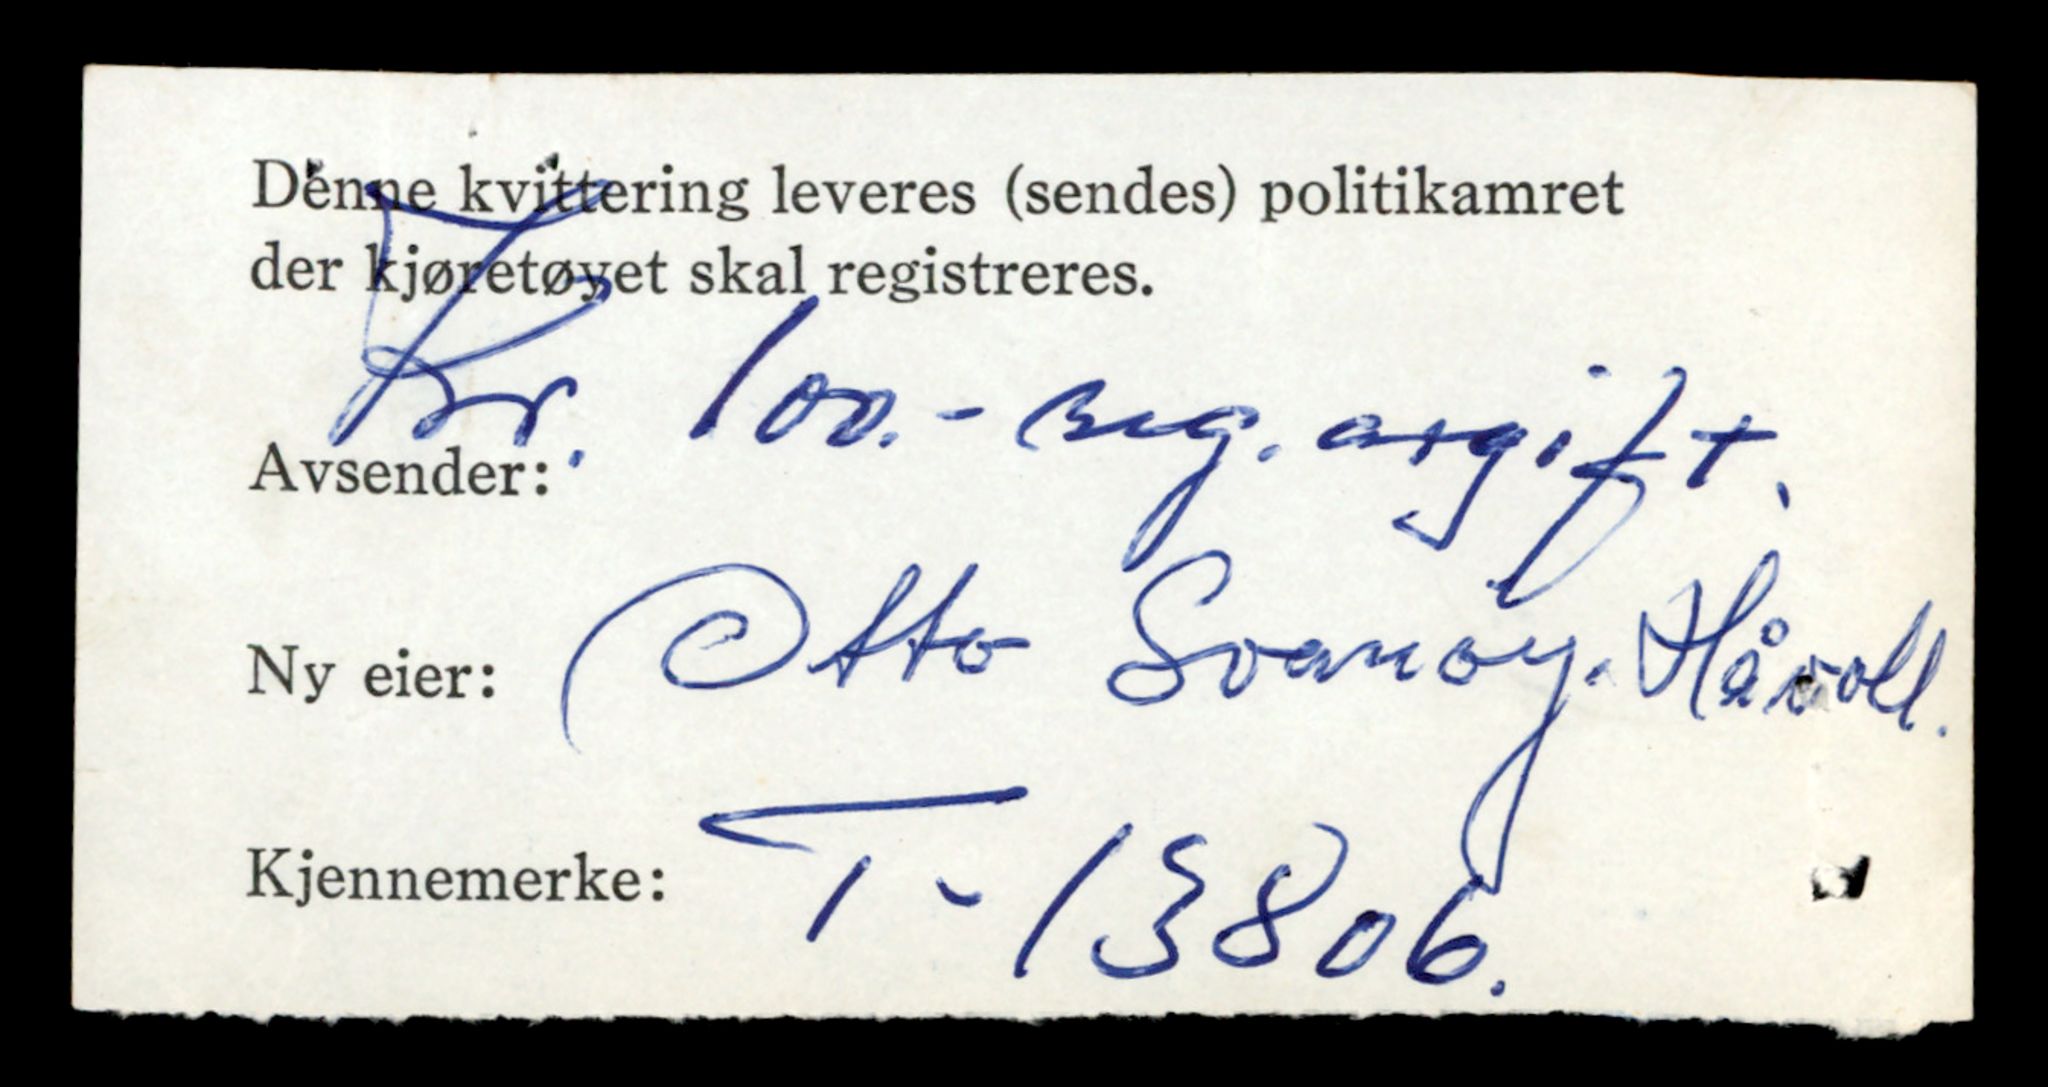 Denne kvittering leveres (sendes) politikamret
der kjøretøyet skal registreres.
Kr. 100.- reg. avgift.
Avsender:
Ny eier: Otto Svanøy. Håvoll.
Kjennemerke: T-13806.